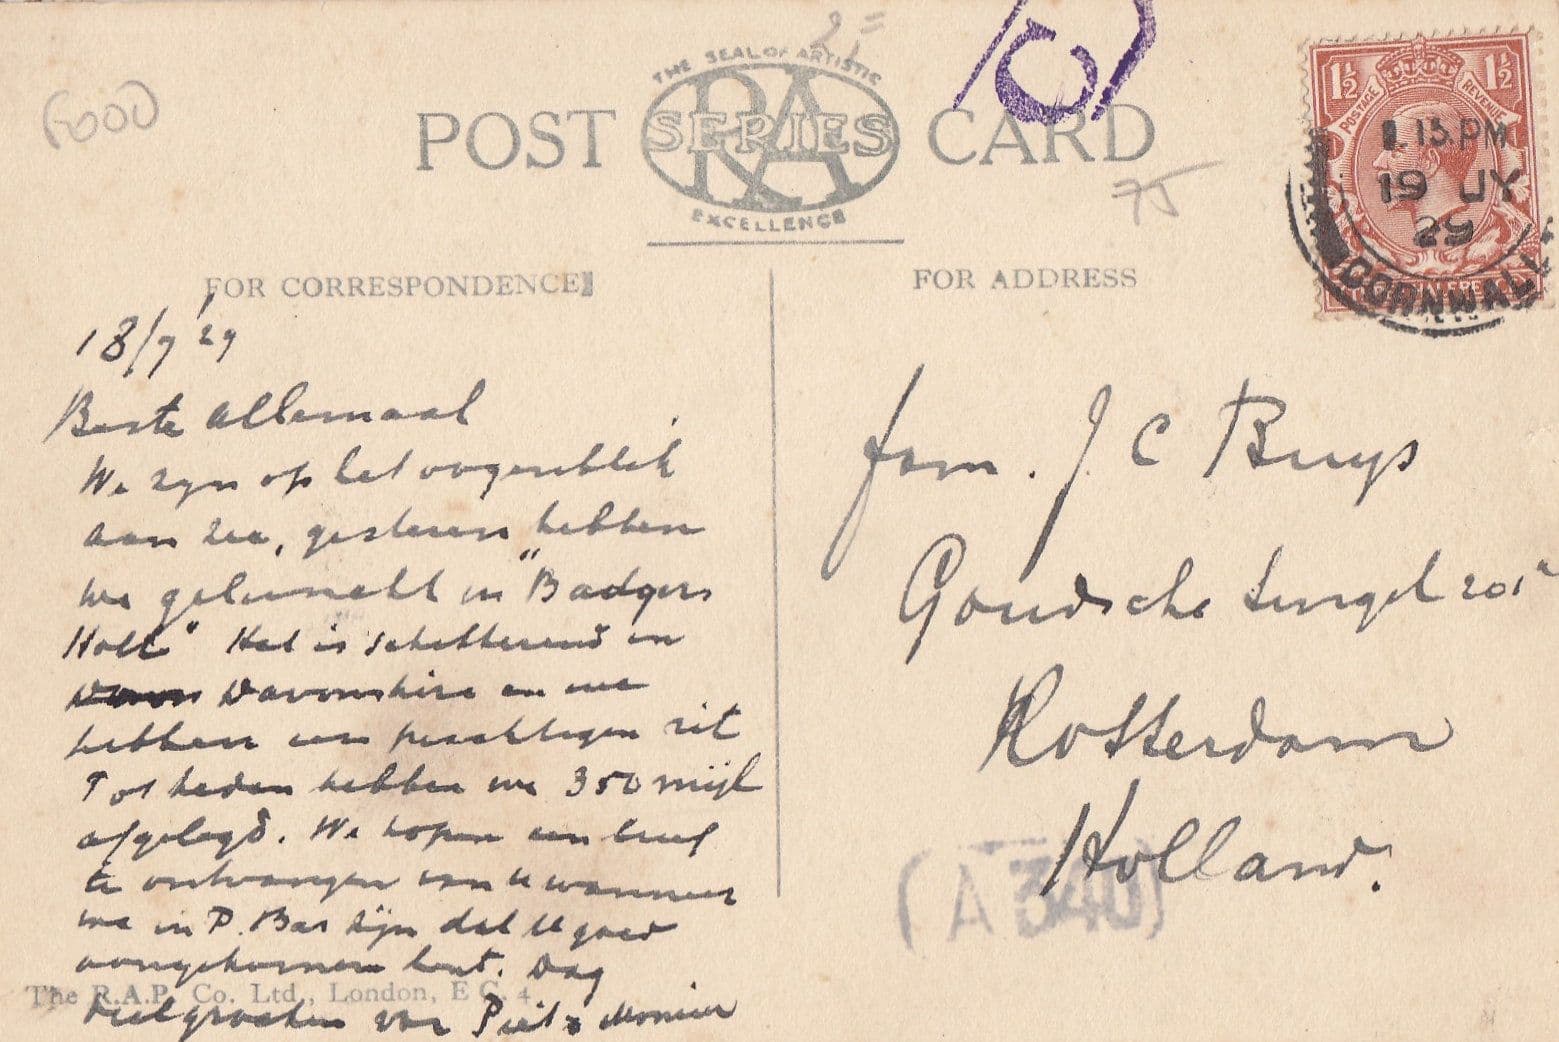 (6000)
2/=
THE SEAL OF ARTISTIC
POST RA SERIES CARD
EXCELLENCE
75
1½ 1½
POSTAGE REVENUE
15 PM
19 JY
29
CORNWALL
FOR CORRESPONDENCE
FOR ADDRESS
18/7 '29
Beste Allemaal
We zyn op het oogenblik
aan zee, gisteren hebben
we geluncht in "Badgers
Holt" Het is schitterend in
Davonshire en we
hebben een prachtigen rit
Tot heden hebben we 350 mijl
afgelegd. We hopen een brief
te ontvangen van U wanneer
we in P. Bar zijn dat U goed
aangekomen bent. Dag
veel groeten van Piet &
The R.A.P. Co. Ltd., London, E C. 4
fam. J C Buys
Goudsche Singel 201
Rotterdam
Holland.
(A 340)